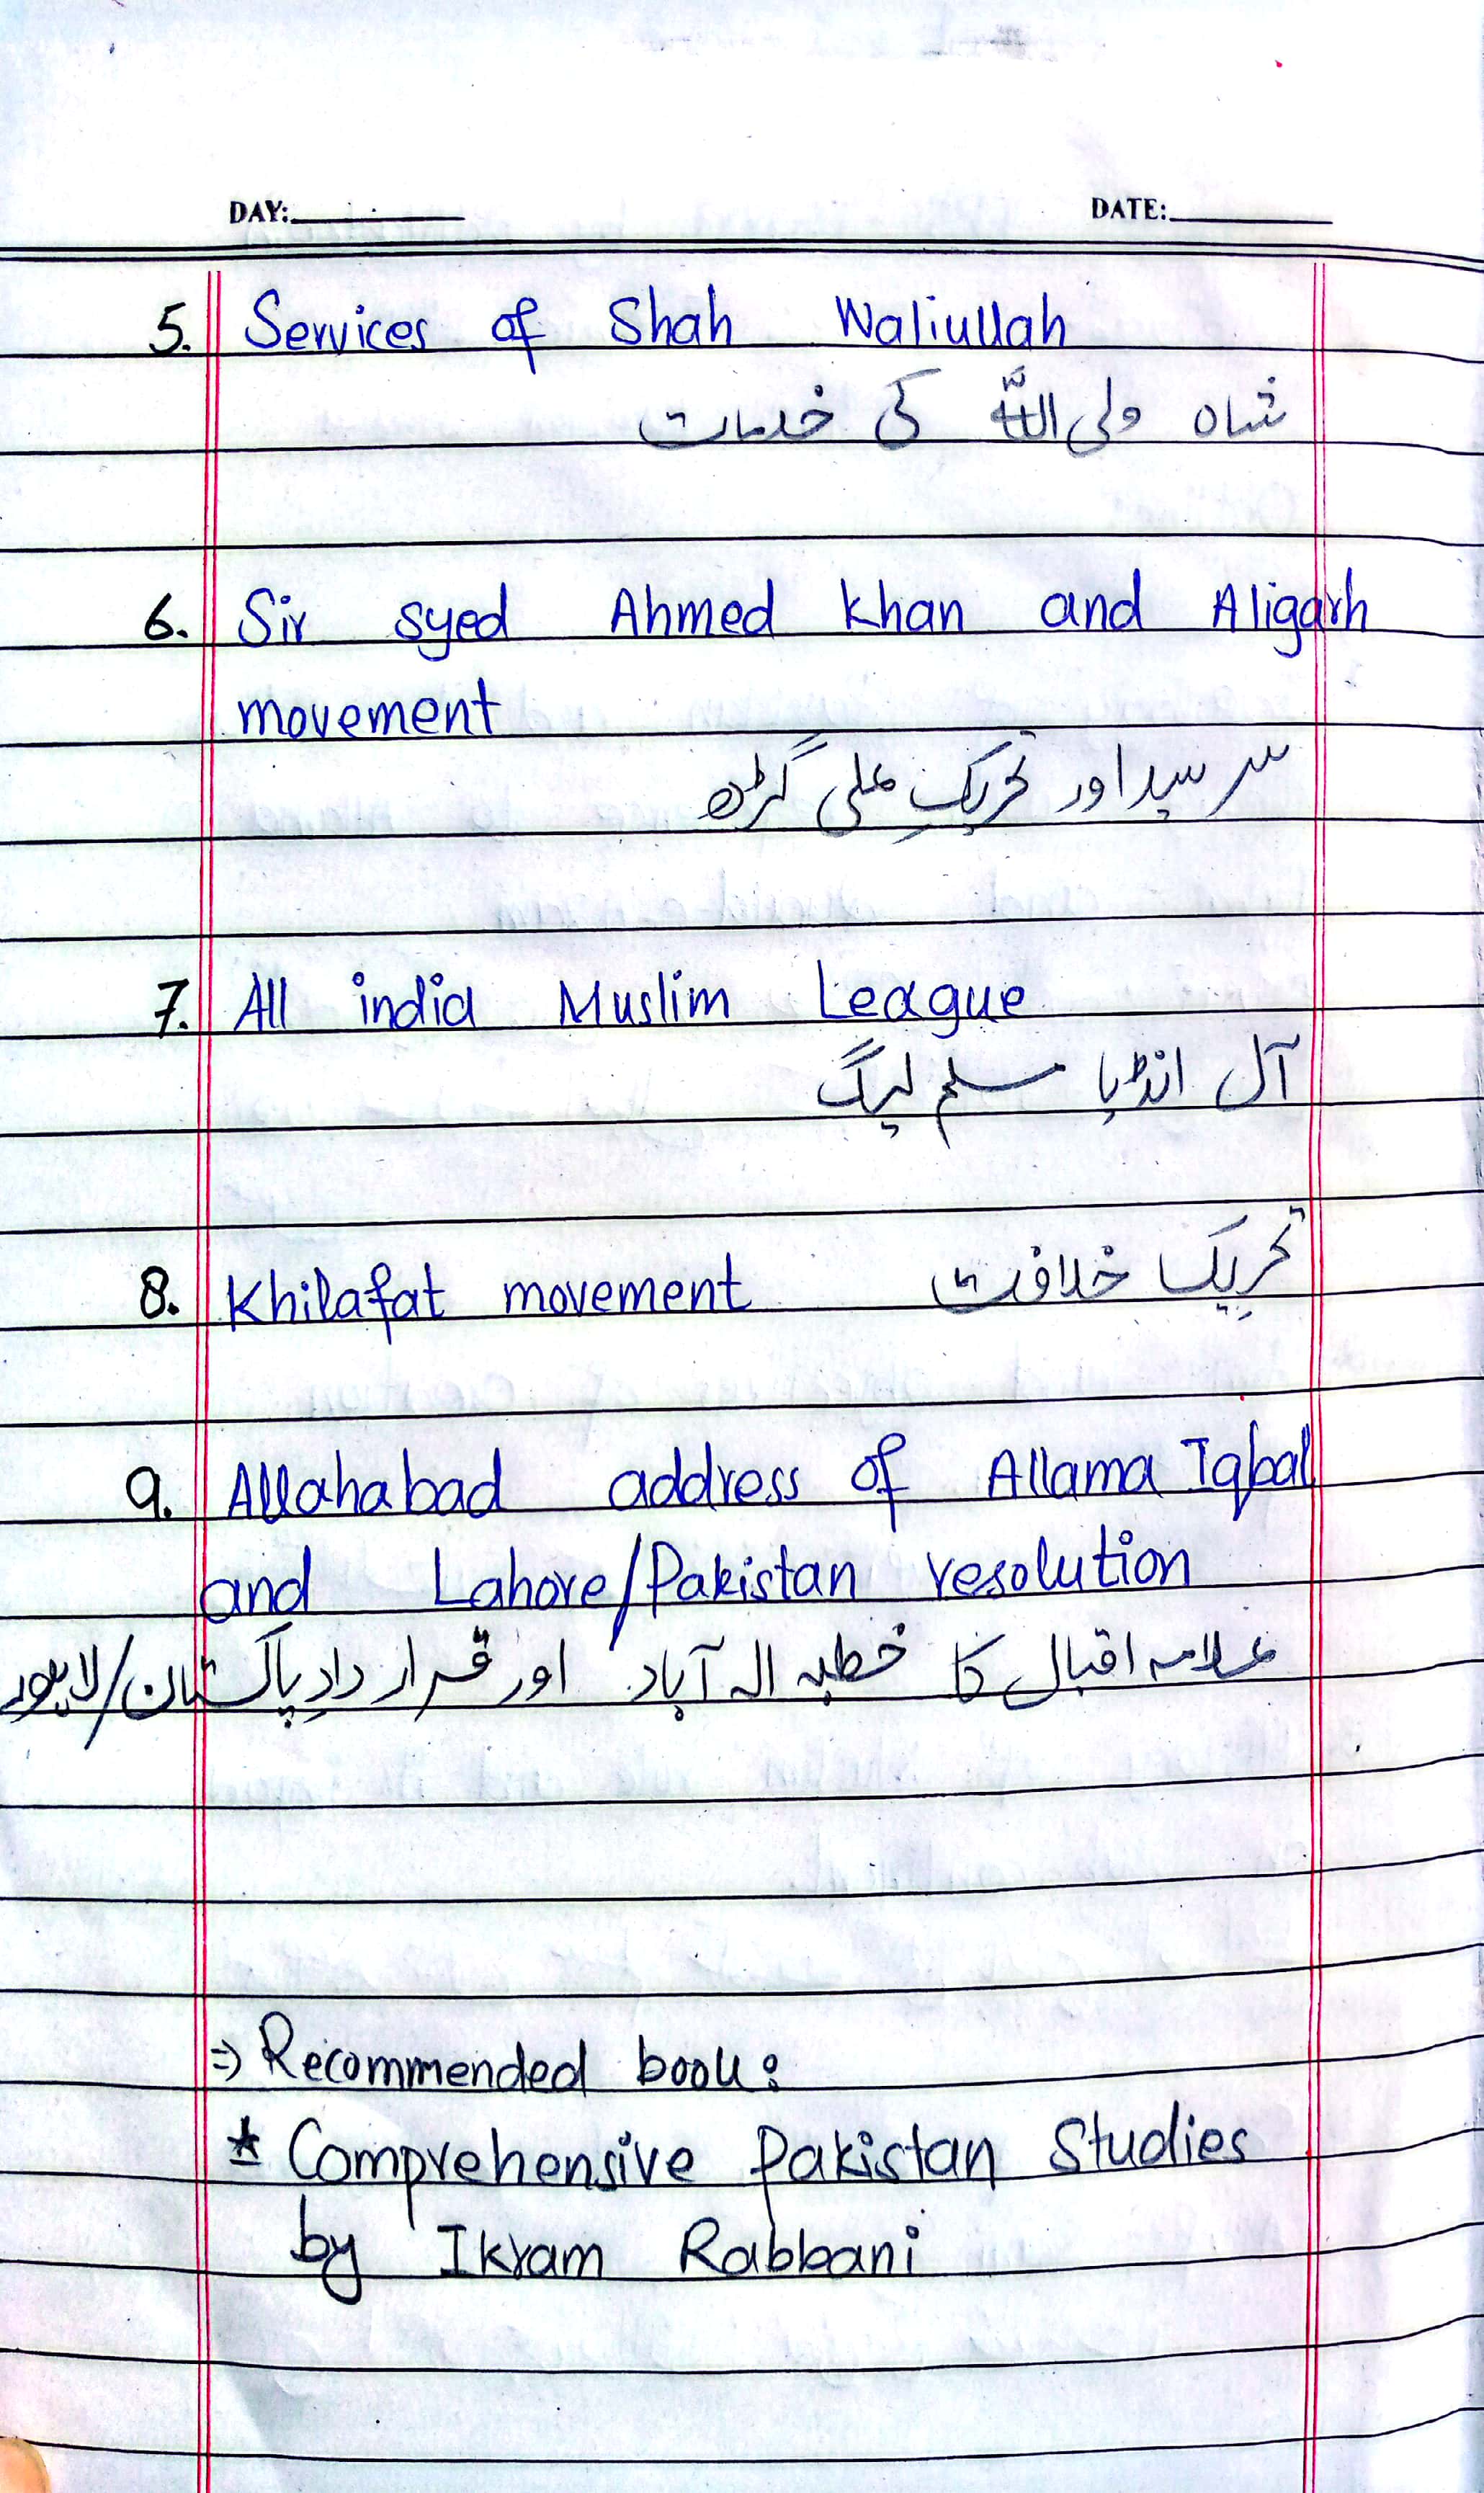 DAY: DATE:
5. Services of Shah Waliullah
شاہ ولی اللہ کی خدمات
6. Sir syed Ahmed khan and Aligarh
movement
سر سید اور تحریکِ علی گڑھ
7. All india Muslim League
آل انڈیا مسلم لیگ
8. Khilafat movement تحریک خلافت
9. Allahabad address of Allama Iqbal
and Lahore/Pakistan resolution
علامہ اقبال کا خطبہ الہ آباد اور قرار دادِ پاکستان/لاہور
⇒ Recommended book:
* Comprehensive Pakistan Studies
by Ikram Rabbani